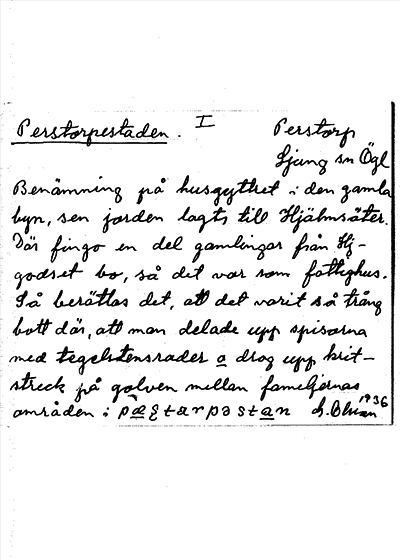 Perstorpestaden. I Perstorp
Ljung sn Ögl
Benämning på husgyttret i den gamla
byn, sen jorden lagts till Hjälmsäter.
Där fingo en del gamlingar från Hj-
godset bo, så det var som fattighus.
Så berättas det, att det varit så trång
bott där, att man delade upp spisarna
med tegelstensrader o drog upp krit-
streck på golven mellan familjernas
områden: 1936